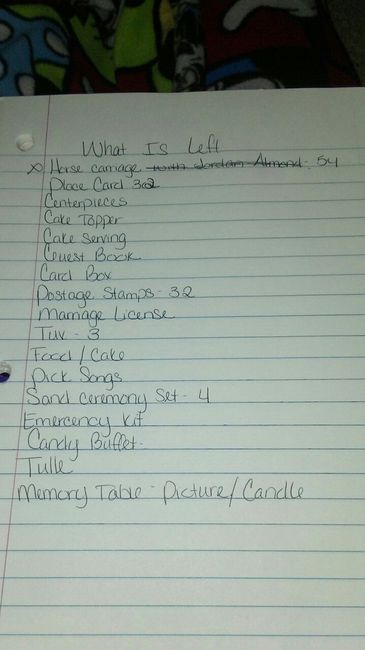 What Is Left
x Horse carriage with Jordan Almond - 54
Place Card 32
Centerpieces
Cake Topper
Cake Serving
Guest Book
Card Box
Postage Stamps - 32
Marriage License
Tux - 3
Food / Cake
Pick Songs
Sand Ceremony Set - 4
Emergency Kit
Candy Buffet -
Tulle
Memory Table - Picture / Candle